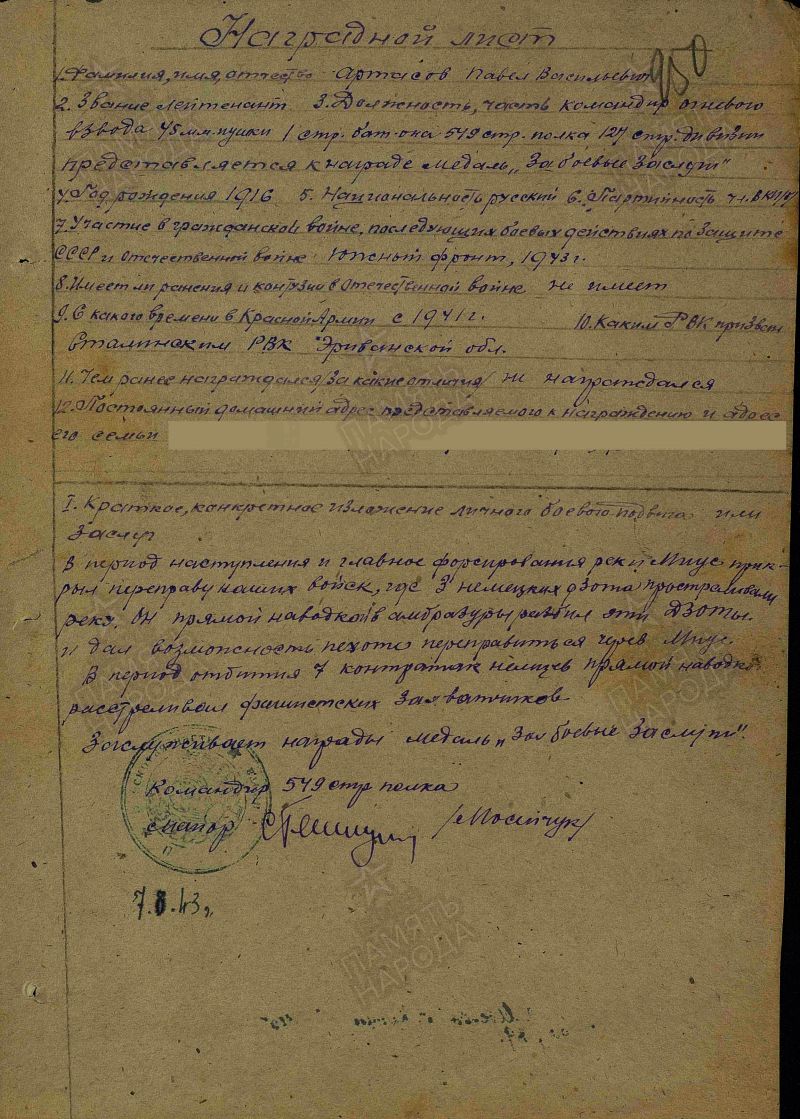 Наградной лист
950
1. Фамилия, имя, отчество Артасов Павел Васильевич
2. Звание лейтенант 3. Должность, часть командир огневого
взвода 45 мм. пушки 1 стр. бат-она 549 стр. полка 127 стр. дивизии
представляется к награде медаль „За боевые заслуги"
4. Год рождения 1916 5. Национальность русский 6. Партийность
7. Участие в гражданской войне, последующих боевых действиях по защите
СССР и отечественной войне Южный фронт, 1943 г.
8. Имеет ли ранения и контузии в Отечественной войне не имеет
9. С какого времени в Красной Армии с 1941 г. 10. Каким РВК призван
Сталинским РВК Эриванской обл.
11. Чем ранее награждался /за какие отличия/ не награждался
12. Постоянный домашний адрес представляемого к награждению и адрес
его семьи
I. Краткое, конкретное изложение личного боевого подвига или
заслуг
В период наступления и главное форсирования реки Миус прик-
рыл переправу наших войск, где 3 немецких дзота простреливали
реку. Он прямой наводкой в амбразуры разбил эти ДЗОТы.
и дал возможность пехоте переправиться через Миус.
В период отбития 7 контратак немцев прямой наводкой
расстреливал фашистских захватчиков
Заслуживает награды медаль „За боевые заслуги".
Командир 549 стр полка
майор /Мосийчук/
7.8.43 г.
ПАМЯТЬ НАРОДА